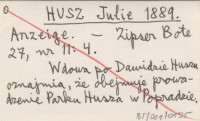 HUSZ Julie 1889.
Anzeige. — Zipser Bote
27, nr 11: 4.
Wdowa po Dawidzie Husz
oznajmia, że obejmuje prowa-
dzenie Parku Husza w Popradzie.